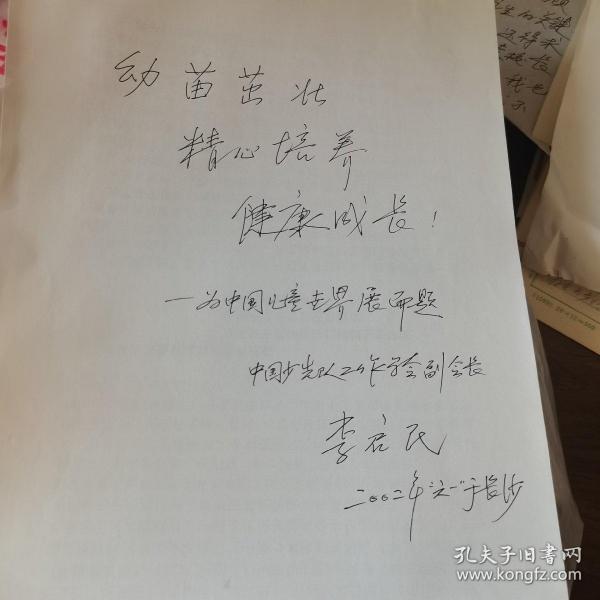 幼苗茁壮
精心培养
健康成长！
—为中国儿童世界展而题
中国少先队工作学会副会长
李启民
二00二年"六一"于长沙
孔夫子旧书网
www.kongfz.com